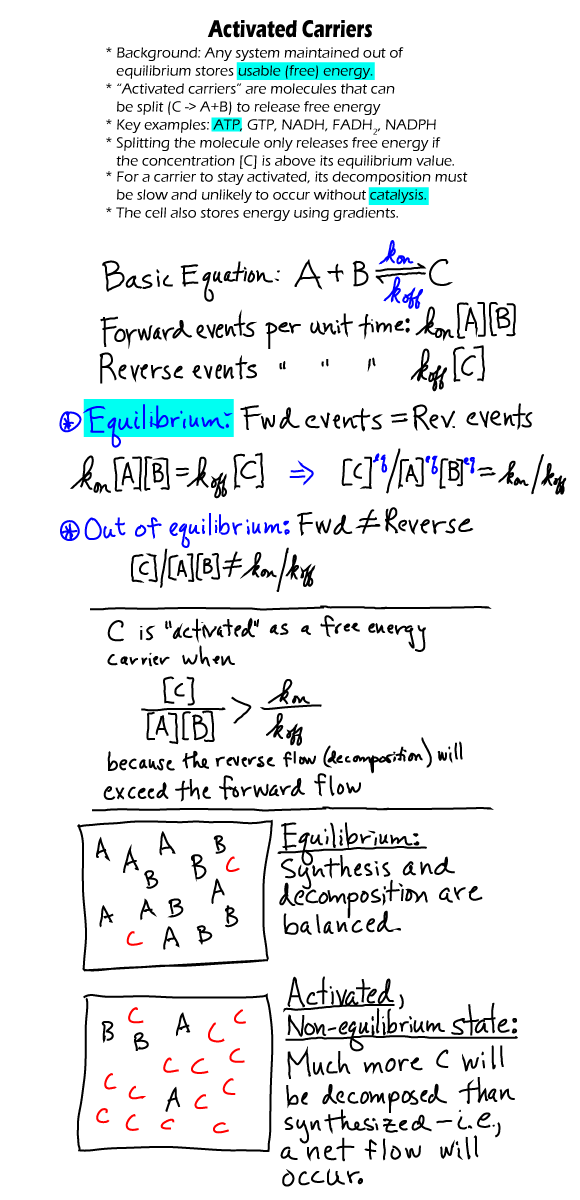 Activated Carriers
* Background: Any system maintained out of
equilibrium stores usable (free) energy.
* “Activated carriers” are molecules that can
be split (C -> A+B) to release free energy
* Key examples: ATP, GTP, NADH, FADH₂, NADPH
* Splitting the molecule only releases free energy if
the concentration [C] is above its equilibrium value.
* For a carrier to stay activated, its decomposition must
be slow and unlikely to occur without catalysis.
* The cell also stores energy using gradients.
Basic Equation: A + B ⇌ C
kon
koff
Forward events per unit time: kon[A][B]
Reverse events " " " koff[C]
⊛ Equilibrium: Fwd events = Rev. events
kon[A][B] = koff[C] ⇒ [C]^eq/[A]^eq[B]^eq = kon/koff
⊛ Out of equilibrium: Fwd ≠ Reverse
[C]/[A][B] ≠ kon/koff
C is "activated" as a free energy
carrier when
[C]/[A][B] > kon/koff
because the reverse flow (decomposition) will
exceed the forward flow
A A A B
B B C
A A B A B
C A B
Equilibrium:
Synthesis and
decomposition are
balanced.
B C B A C C
C C C
C C A C C
C C C C
Activated,
Non-equilibrium state:
Much more C will
be decomposed than
synthesized – i.e.,
a net flow will
occur.